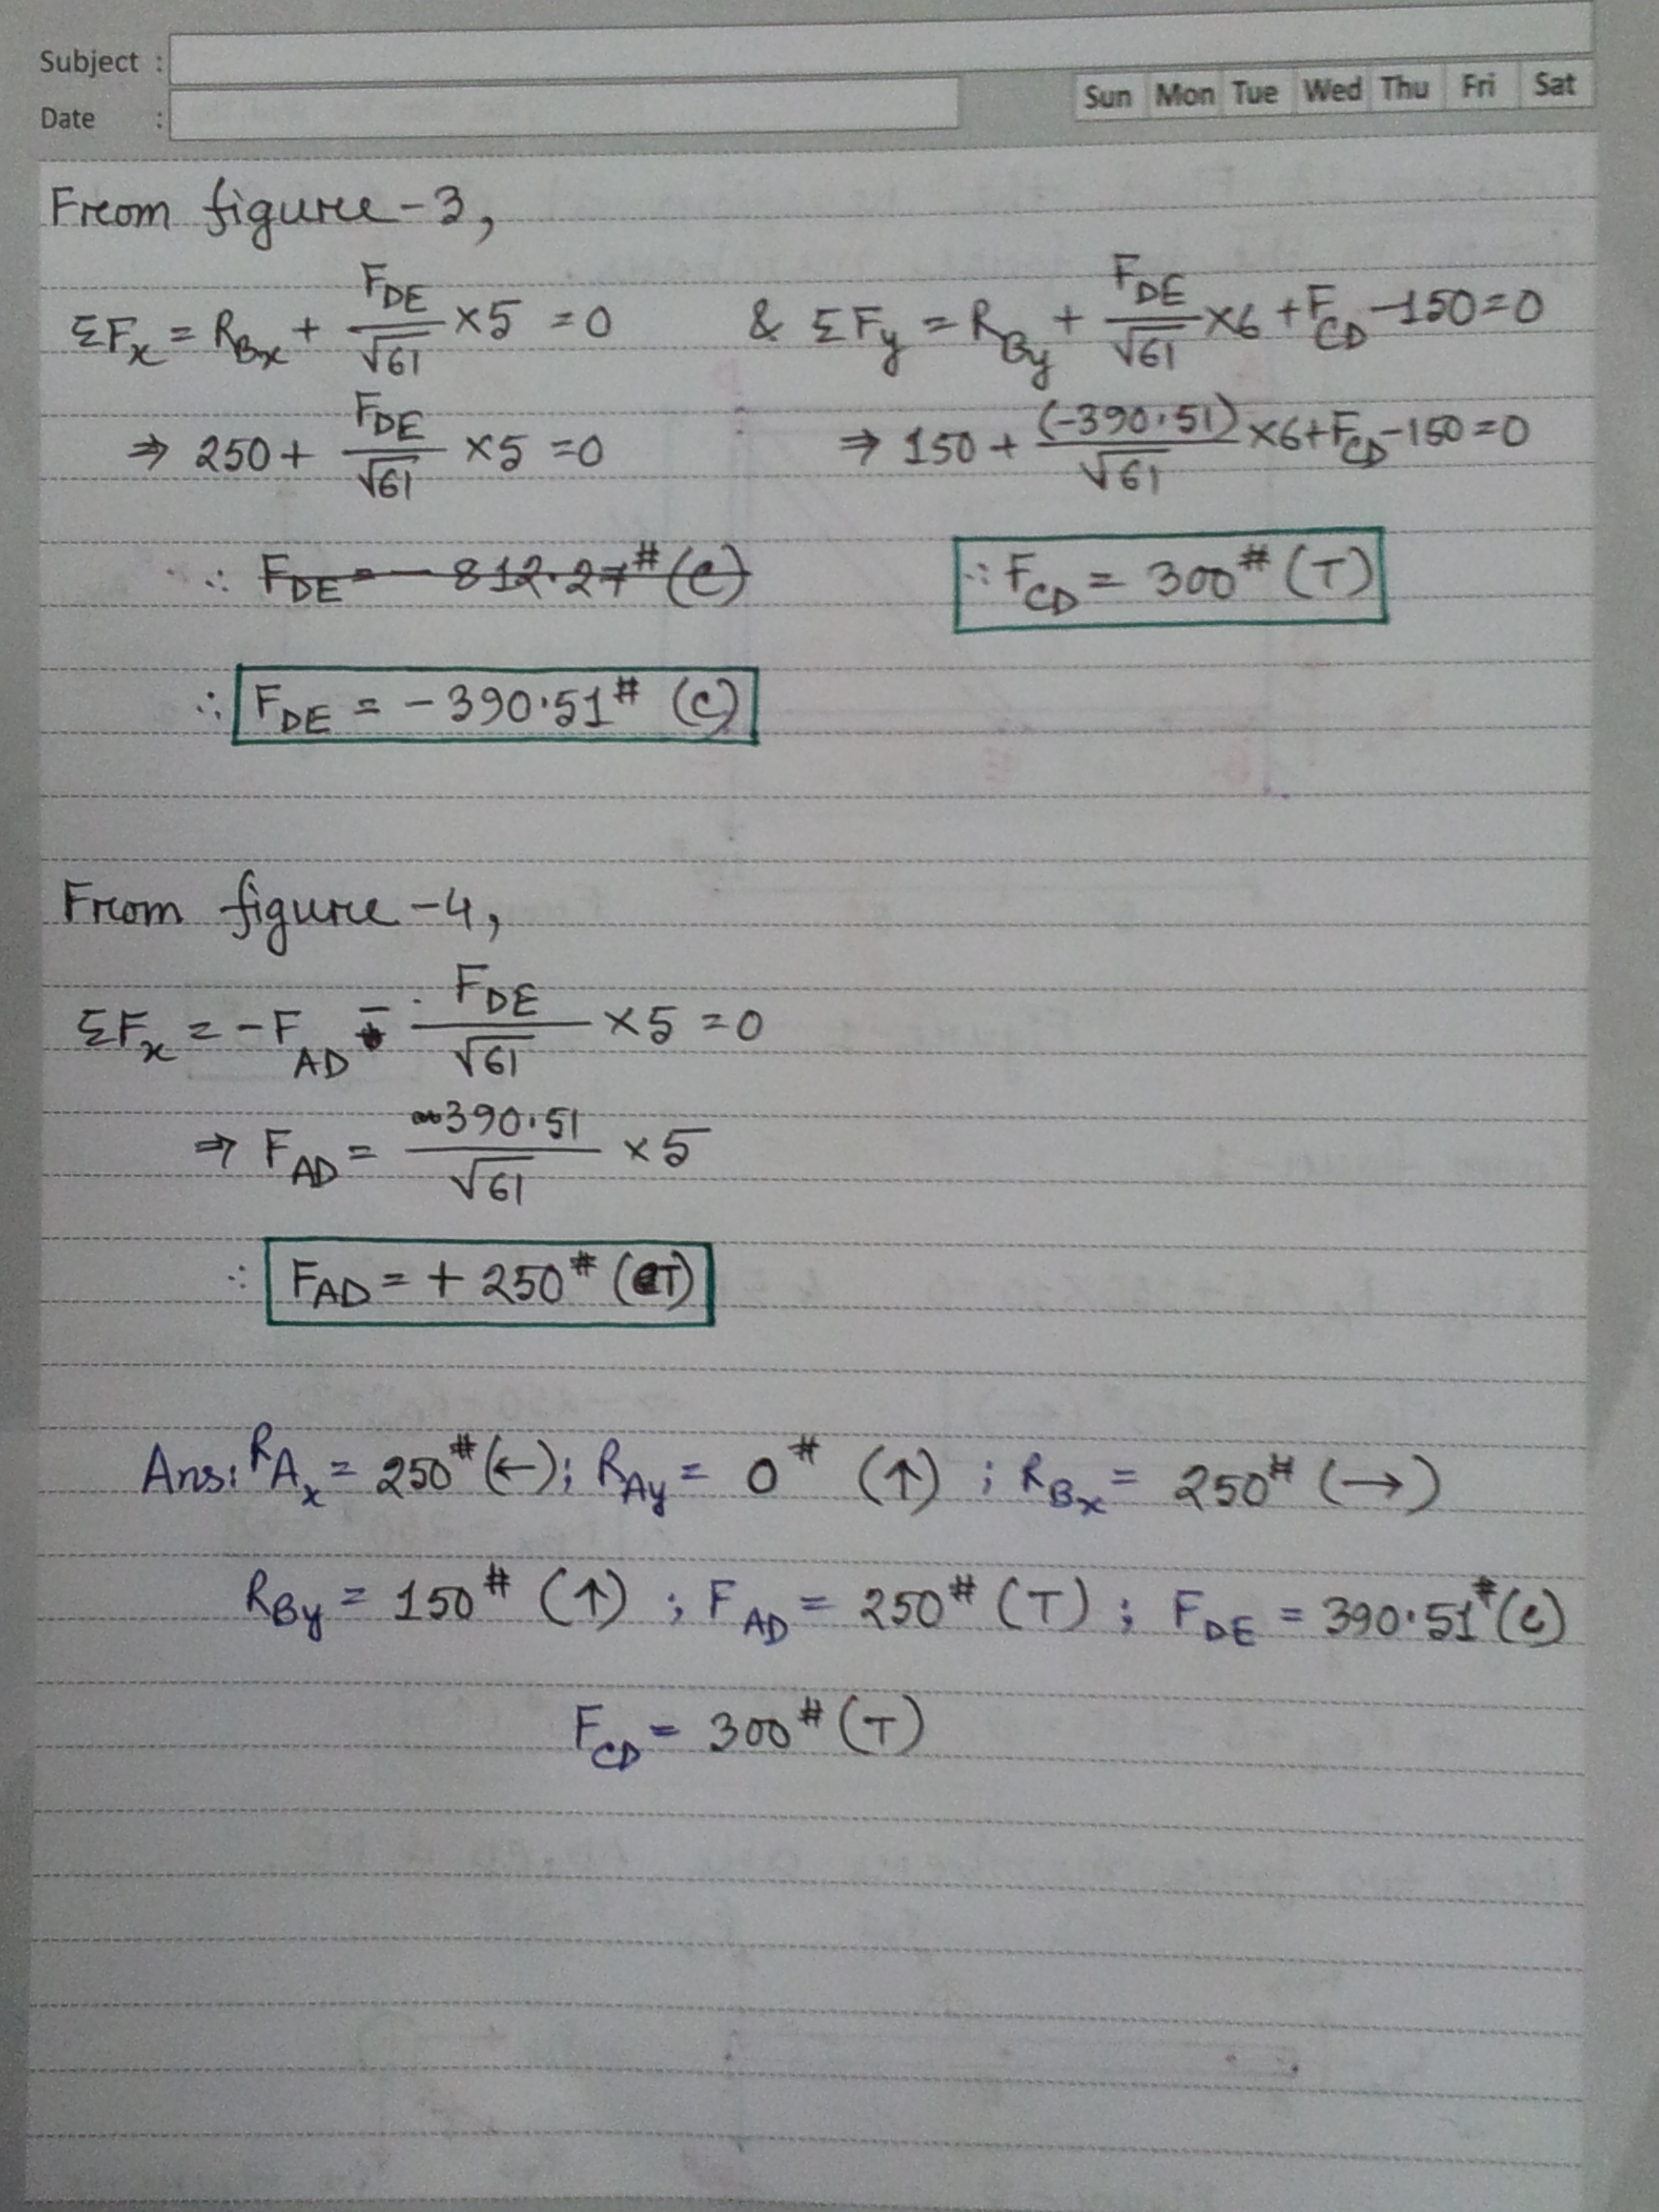 Subject :
Date :
Sun Mon Tue Wed Thu Fri Sat
From figure-3,
ΣFx = RBx + FDE/√61 ×5 = 0 & ΣFy = RBy + FDE/√61 ×6 + FCD -150 = 0
⇒ 250 + FDE/√61 ×5 = 0 ⇒ 150 + (-390.51)/√61 ×6 + FCD -150 = 0
∴ FDE = - 812.27# (C) ∴ FCD = 300# (T)
∴ FDE = - 390.51# (C)
From figure-4,
ΣFx = -FAD - FDE/√61 ×5 = 0
⇒ FAD = 390.51/√61 ×5
∴ FAD = + 250# (T)
Ans: RAx = 250# (←); RAy = 0# (↑) ; RBx = 250# (→)
RBy = 150# (↑) ; FAD = 250# (T) ; FDE = 390.51# (C)
FCD = 300# (T)